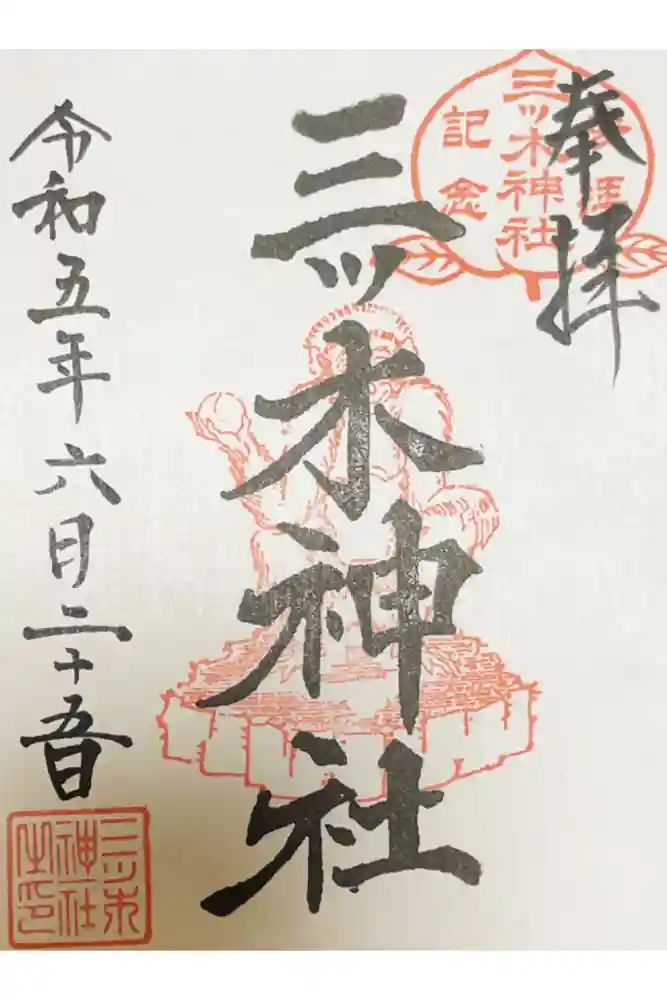 奉拝
参拝
三ッ木神社
記念
三ッ木神社
令和五年六月二十五日
三ツ木
神社
之印